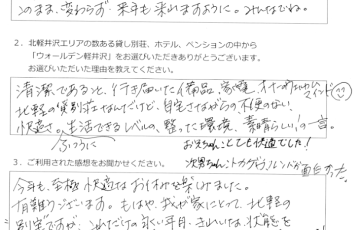 このまま、変わらず、来年も来れますように。みんなでね。
2. 北軽井沢エリアの数ある貸し別荘、ホテル、ペンションの中から
「ウォールデン軽井沢」をお選びいただきありがとうございます。
お選びいただいた理由を教えてください。
清潔であること、行き届いた備品、
北軽の貸別荘なんだけど、自宅さながらの不便のない
快適さ。生活できるレベルの、整った環境、素晴らしい！の一言。
ふつうに
お兄ちゃん：とても快適でした！
次男ちゃん：トカゲ
3. ご利用された感想をお聞かせください。
今年も、至極快適なお休みを楽しめました。
有難うございます。もはや、我が家にとって、北軽の
別宅ですが、これだけの永い年月、きれいな状態を